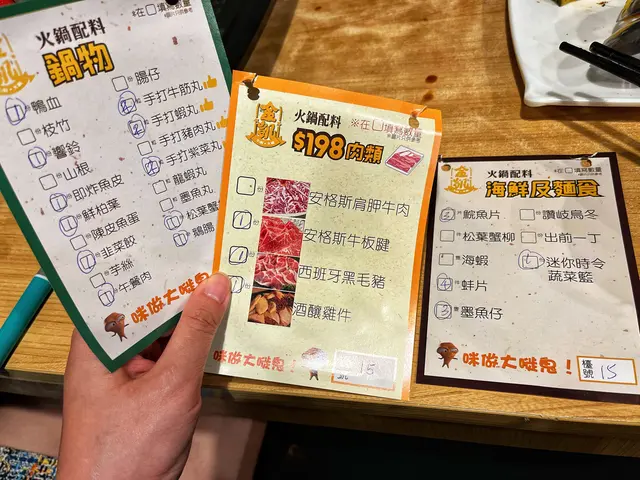 火鍋配料
※在□填寫數量
鍋物
1 鴨血
枝竹
1 響鈴
山根
1 即炸魚皮
1 鮮柏葉
陳皮魚蛋
1 韭菜餃
芋絲
1 牛䐁肉
腸仔
2 手打牛筋丸
2 手打蝦丸
手打豬肉丸
2 手打紫菜丸
龍蝦丸
墨魚丸
1 松葉蟹
1 鵝腸
咪做大嘥鬼
金凱
火鍋配料
※在□填寫數量
※圖片只供參考
$198 肉類
份 安格斯肩胛牛肉
1 安格斯牛板腱
1 西班牙黑毛豬
1 酒釀雞件
咪做大嘥鬼!
15
金凱
火鍋配料
※在□填寫數量
海鮮及麵食
鯇魚片
松葉蟹柳
海蝦
4 蚌片
3 墨魚仔
讚岐烏冬
出前一丁
1 迷你時令
蔬菜籃
咪做大嘥鬼!
檯號 15